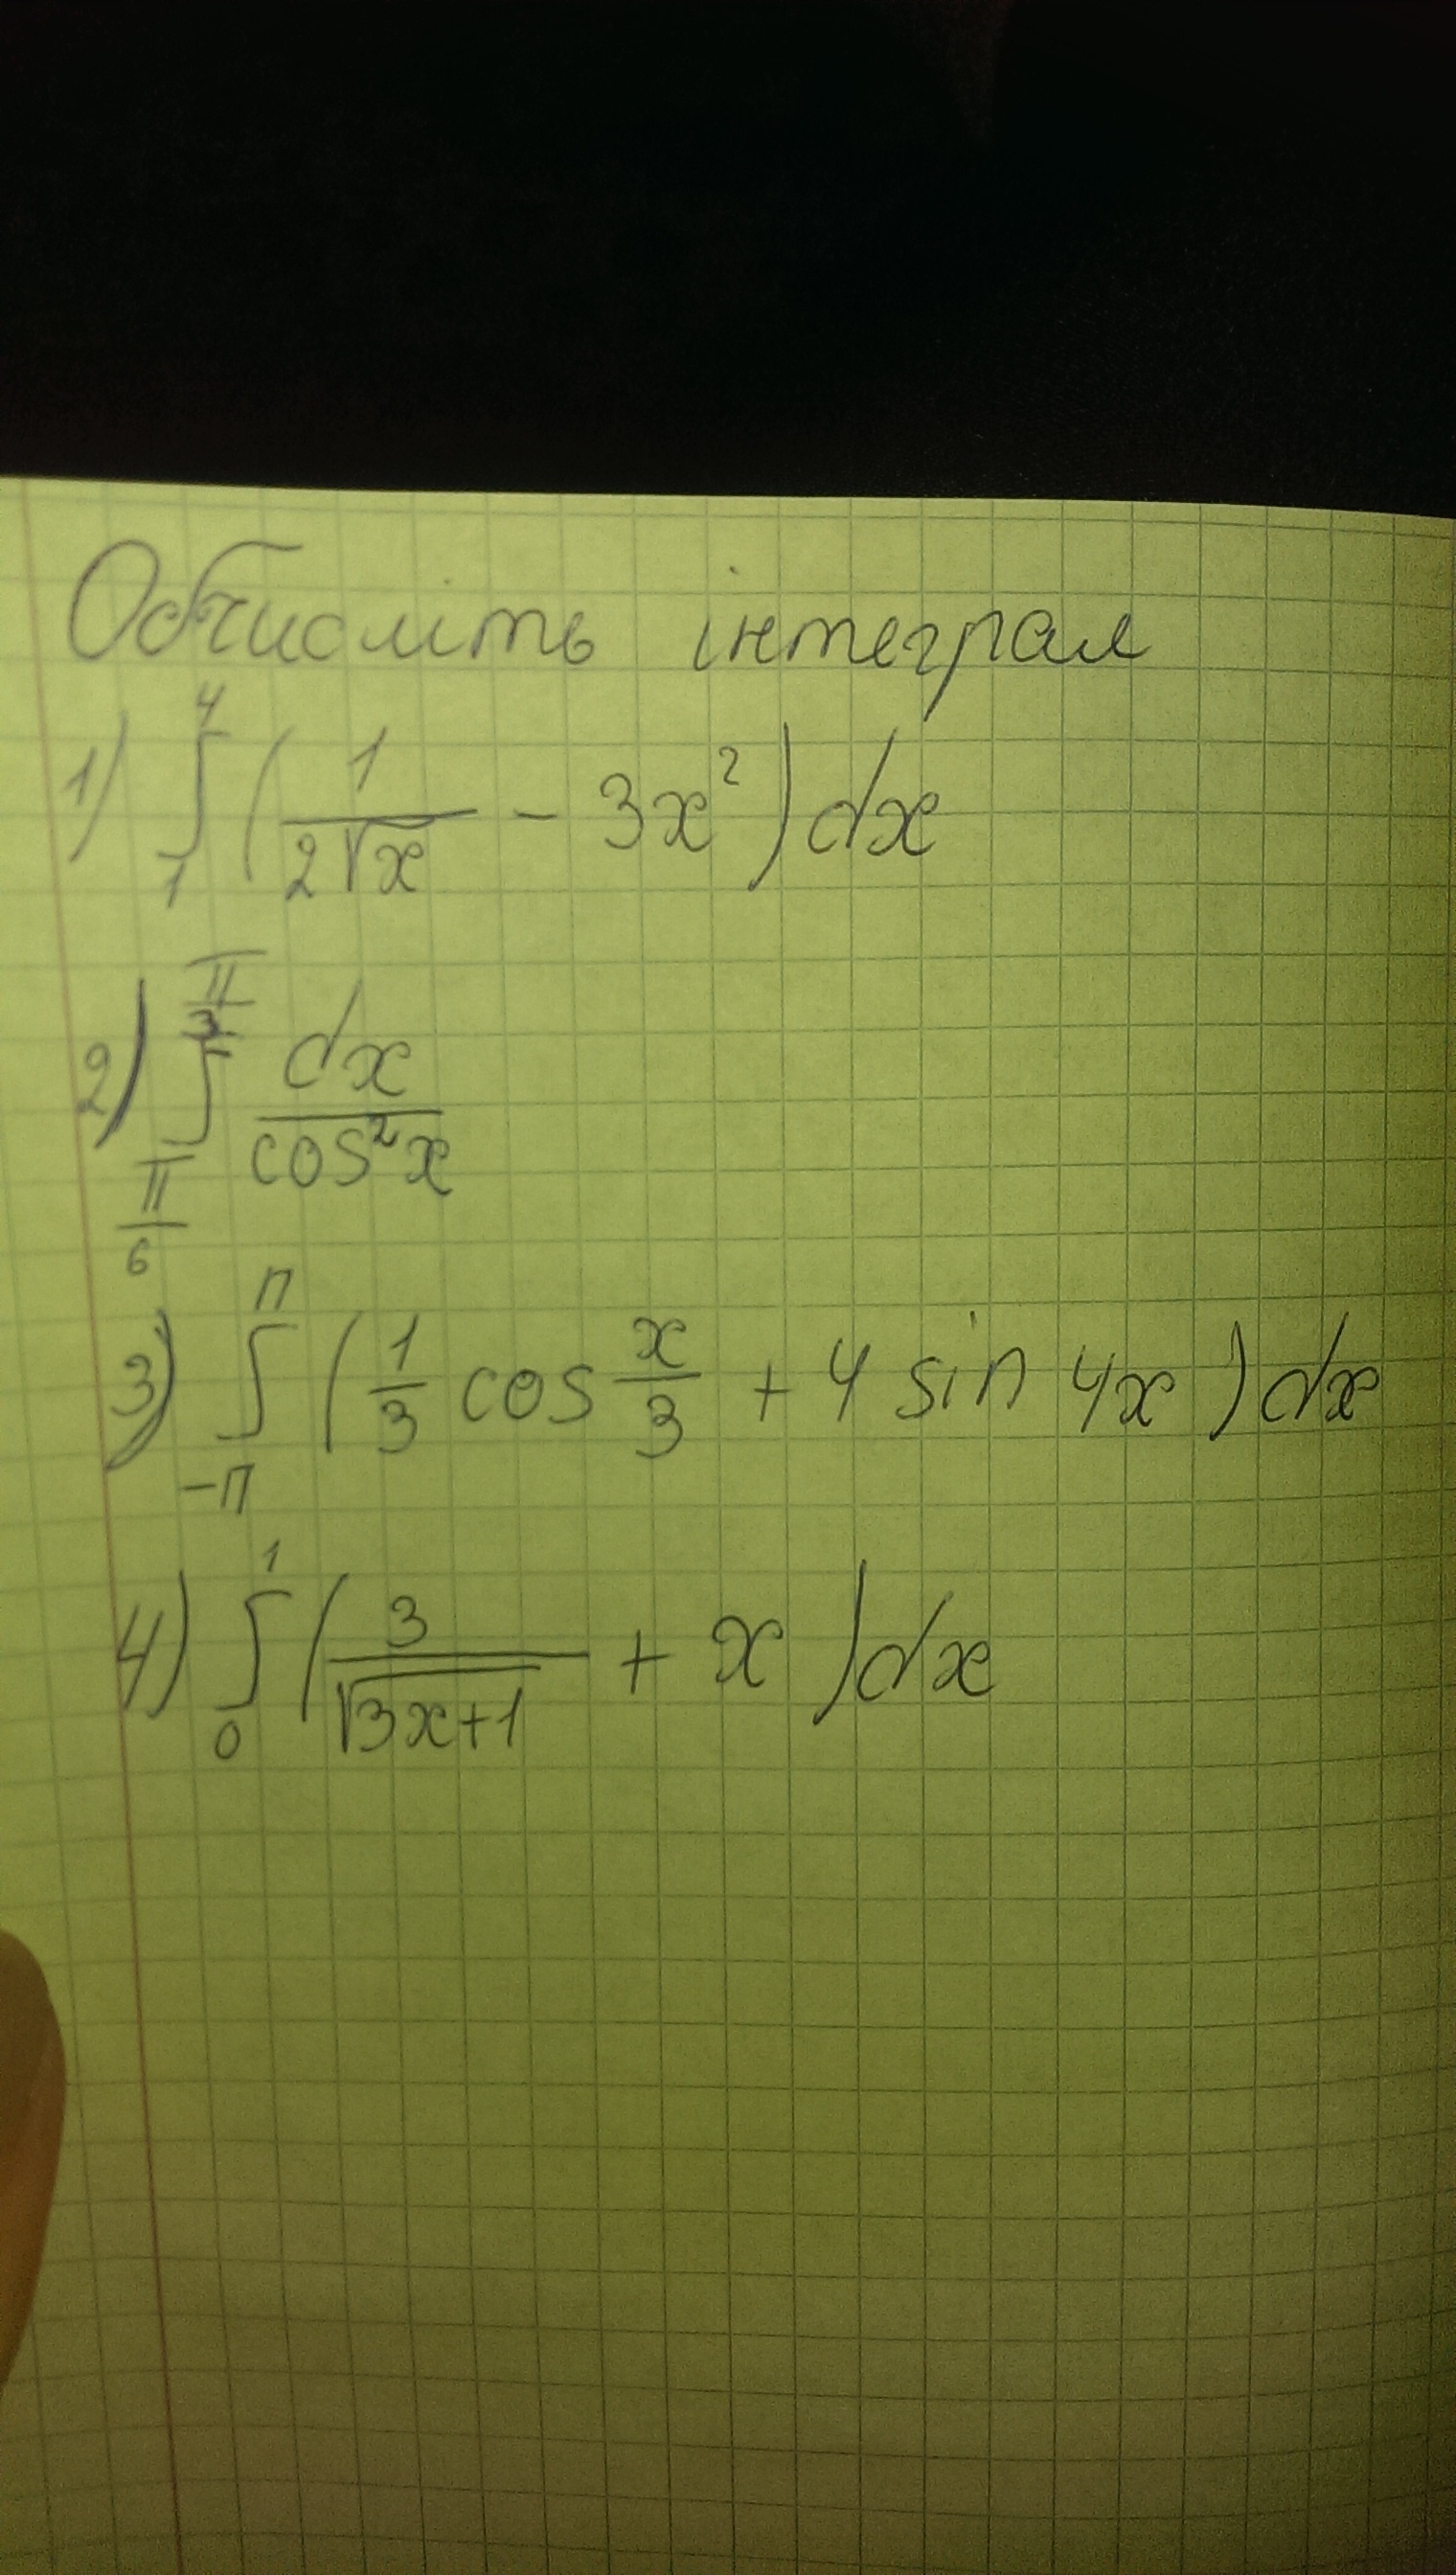 Обчисліть інтеграл
1) ∫₁⁴ (1/(2√x) - 3x²) dx
2) ∫_{π/6}^{π/3} dx/cos²x
3) ∫_{-π}^{π} (1/3 cos x/3 + 4 sin 4x) dx
4) ∫₀¹ (3/√(3x+1) + x) dx